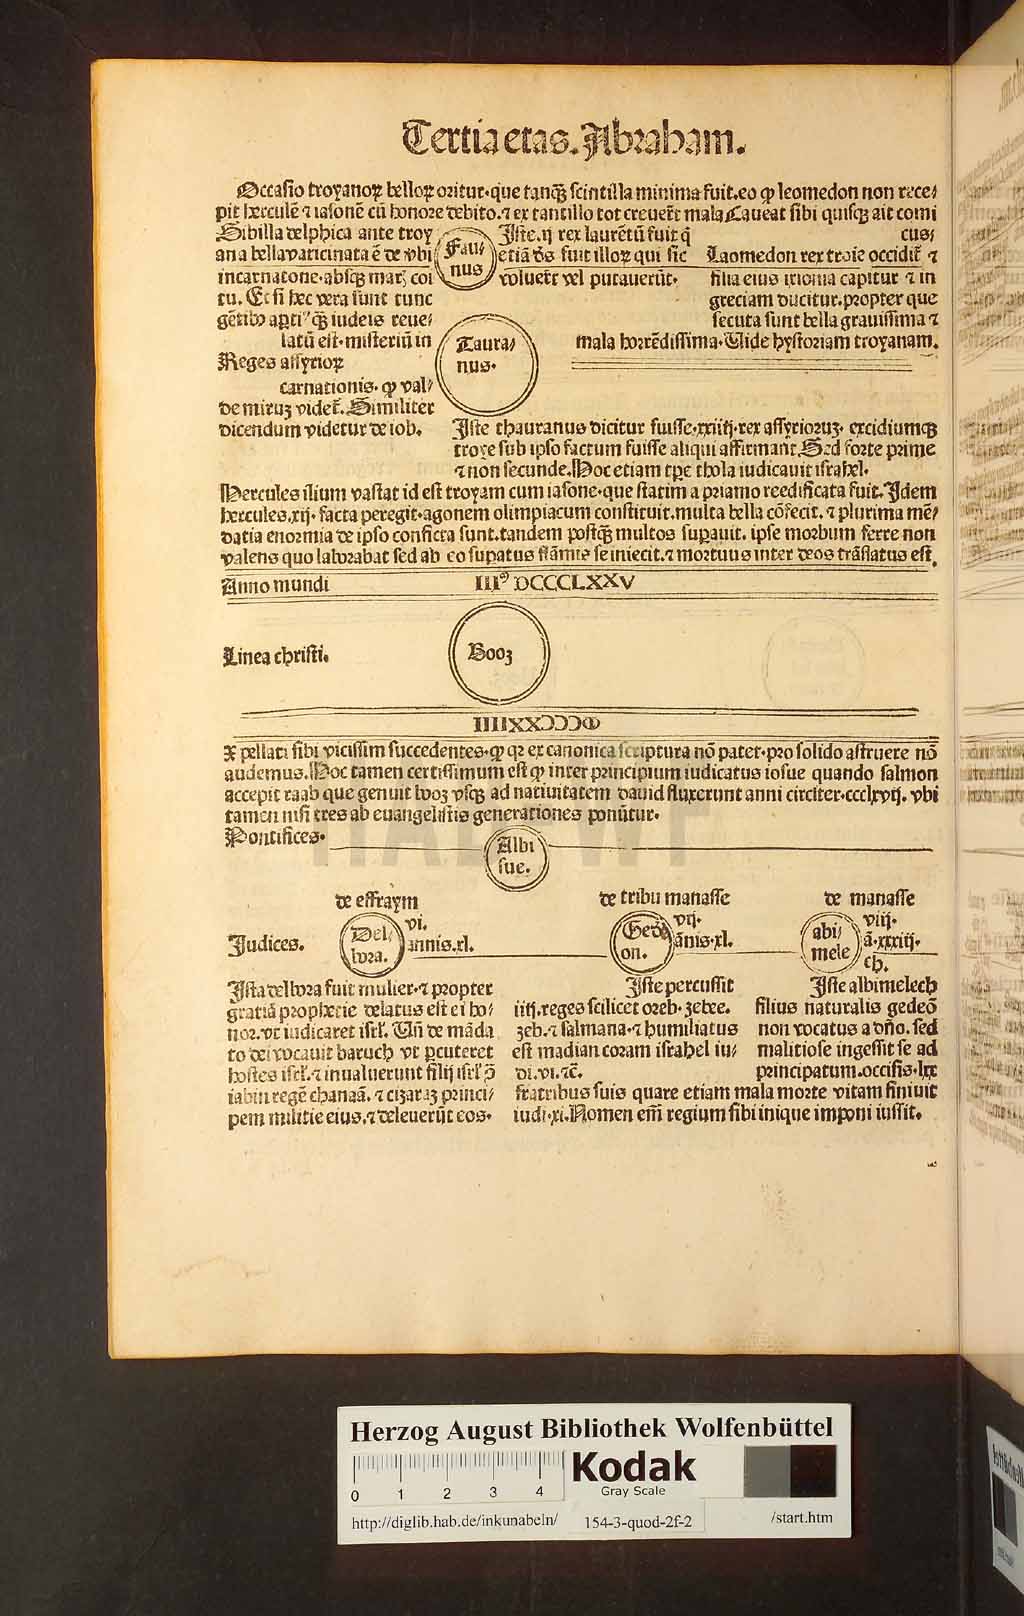 Tertia etas. Abraham.
Occasio troyanoꝝ belloꝝ oritur·que tanq̄ȝ scintilla minima fuit.eo ꝙ leomedon non rece⸗
pit herculē ⁊ iasonē cū honore debito.⁊ ex tantillo tot creuerūt mala Caueat sibi quisqȝ ait comi
cus⸗
Sibilla delphica ante troy
ana bella vaticinata ē de vbi
incarnatone·absqȝ mar; coi
tu. Et si hec vera sunt tunc
gētibꝰ apti q̄ȝ iudeis reue⸗
latū est·misteriū in
Fau⸗
nus
Iste.ij rex laurētū fuit q̄
etiā d̄s fuit illoꝝ qui sic
voluer̄t vel putauerūt·
Laomedon rex troie occidit̄ ⁊
filia eius ixionia capitur ⁊ in
greciam ducitur.propter que
secuta sunt bella grauissima ⁊
mala horrēdissima·Vide hystoriam troyanam.
Reges assyrioꝝ
Taura⸗
nus·
carnationis· ꝙ val⸗
de miruȝ videt̄. Similiter
dicendum videtur de iob.
Iste thauranus dicitur fuisse·xxiiij·rex assyrioruȝ· excidiumqȝ
troye sub ipso factum fuisse aliqui affirmant.Sed forte prime
⁊ non secunde.Hoc etiam tꝑe thola iudicauit israhel·
Hercules ilium vastat id est troyam cum iasone·que statim a priamo reedificata fuit. Idem
hercules.xij· facta peregit·agonem olimpiacum constituit.multa bella cōfecit. ⁊ plurima mē⸗
datia enormia de ipso conficta sunt.tandem postq̄ȝ multos suꝑauit. ipse morbum ferre non
valens quo laborabat sed ab eo suꝑatus flāmis se iniecit.⁊ mortuus inter deos trāslatus est.
Anno mundi III⁹ DCCCCLXXV
Linea christi.
Booz
IIIIXXƆƆƆↀ
pellati sibi vicissim succedentes·ꝙ qꝛ ex canonica scriptura nō patet·pro solido astruere nō
audemus.Hoc tamen certissimum est ꝙ inter principium iudicatus iosue quando salmon
accepit raab que genuit booȝ vsqȝ ad natiuitatem dauid fluxerunt anni circiter·ccclxvij. vbi
tamen nisi tres ab euangelistis generationes ponūtur·
Pontifices·
Albi
sue.
de effraym
de tribu manasse
de manasse
Judices.
Del⸗
bora.
vi.
annis.xl.
Gede⸗
on.
vij·
ānis·xl.
abi⸗
mele
viij·
ā·xxxiij.
ch.
Ista delbora fuit mulier·⁊ propter
gratiā prophetie delatus est ei ho⸗
nor.vt iudicaret isrl̄. Vn̄ de māda
to dei vocauit baruch vt ꝑcuteret
hostes isrl̄.⁊ inualuerunt filij isrl̄ ↄ̄
iabin regē chanaā. ⁊ cizaraȝ princi⸗
pem militie eius.⁊ deleuerūt eos·
Iste percussit
iiij.reges scilicet oreb·zebee.
zeb.⁊ salmana·⁊ humiliatus
est madian coram israhel iu⸗
di.vi.⁊c̄.
Iste albimelech
filius naturalis gedeō
non vocatus a dn̄o. sed
malitiose ingessit se ad
principatum.occisis·lxx
fratribus suis quare etiam mala morte vitam finiuit
iudi·xi.Nomen em̄ regium sibi inique imponi iussit.
HAB WF
Herzog August Bibliothek Wolfenbüttel
0 1 2 3 4
Kodak
Gray Scale
http://diglib.hab.de/inkunabeln/ 154-3-quod-2f-2 /start.htm